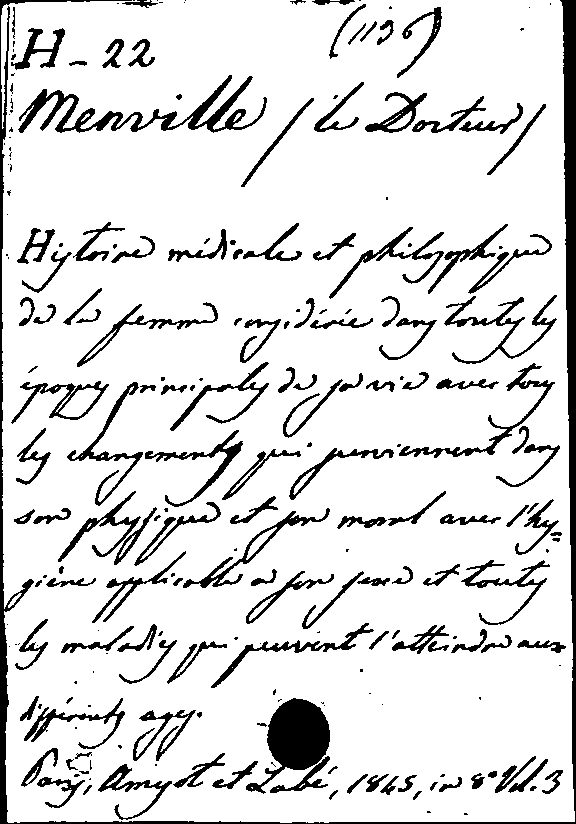 H-22 (1136)
Menville / le Docteur /
Histoire médicale et philosophique
de la femme considérée dans toutes les
époques principales de sa vie avec tous
les changements qui surviennent dans
son physique et son moral avec l'hy=
giène applicable a son sexe et toutes
les maladies qui peuvent l'atteindre aux
différents ages.
Paris, Amyot et Labé, 1845, in 8° Vol. 3